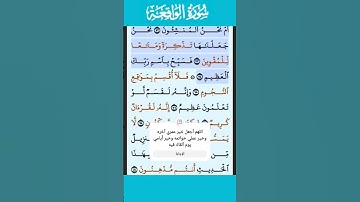 سورة الواقعة
أَمْ نَحْنُ ٱلْمُنشِـُٔونَ ۝ نَحْنُ
جَعَلْنَـٰهَا تَذْكِرَةً وَمَتَـٰعًا
لِّلْمُقْوِينَ ۝ فَسَبِّحْ بِٱسْمِ رَبِّكَ
ٱلْعَظِيمِ ۝ فَلَآ أُقْسِمُ بِمَوَٰقِعِ
ٱلنُّجُومِ ۝ وَإِنَّهُۥ لَقَسَمٌ لَّوْ
تَعْلَمُونَ عَظِيمٌ ۝ إِنَّهُۥ لَقُرْءَانٌ
كَرِيمٌ
اللهم اجعل خير عمري آخره
وخير عملي خواتمه وخير أيامي
يوم ألقاك فيه
ٱلْحَدِيثِ أَنتُم مُّدْهِنُونَ